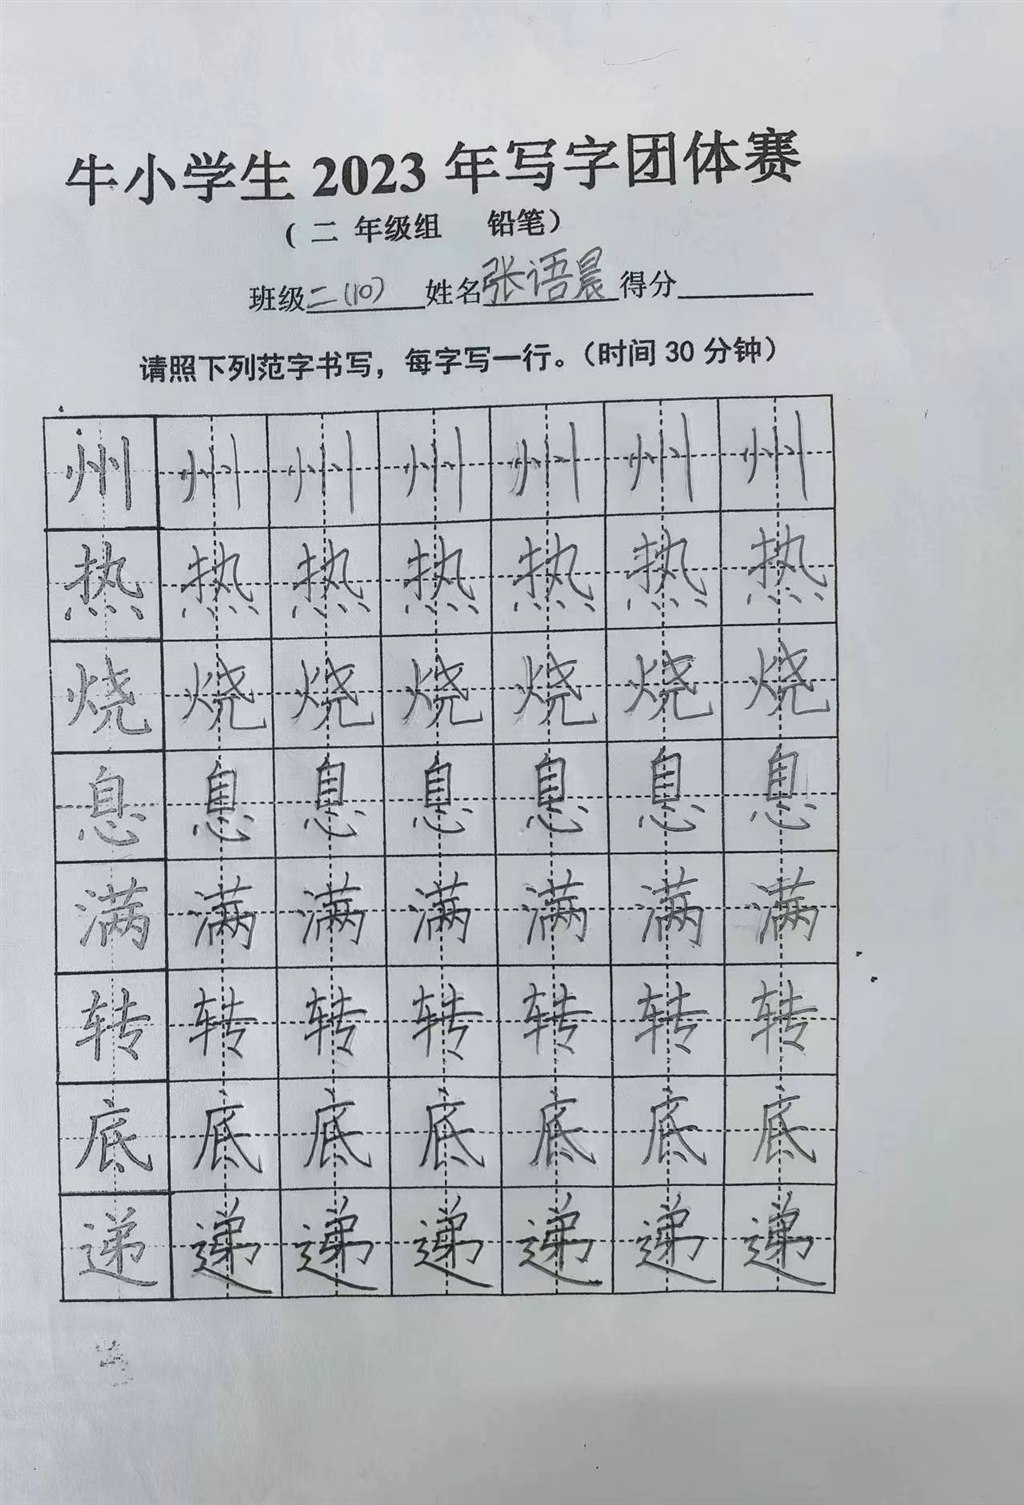 牛小学生 2023 年写字团体赛
（ 二 年级组 铅笔）
班级二(10) 姓名张语晨得分
请照下列范字书写，每字写一行。（时间 30 分钟）
州 州 州 州 州 州 州
热 热 热 热 热 热 热
烧 烧 烧 烧 烧 烧 烧
息 息 息 息 息 息 息
满 满 满 满 满 满 满
转 转 转 转 转 转 转
底 底 底 底 底 底 底
递 递 递 递 递 递 递